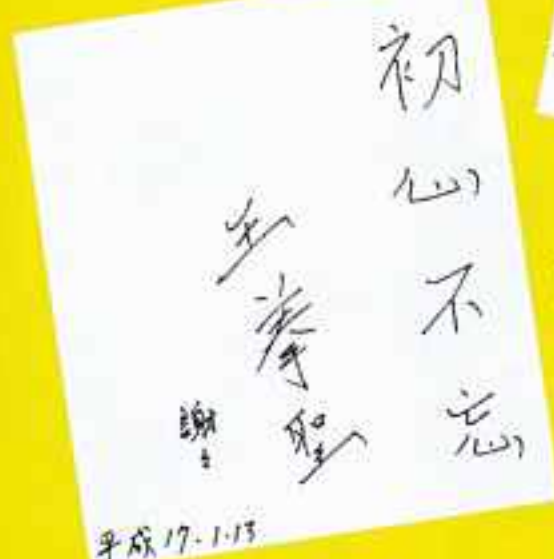 初心不忘
王拳聖
謝
平成17.1.13